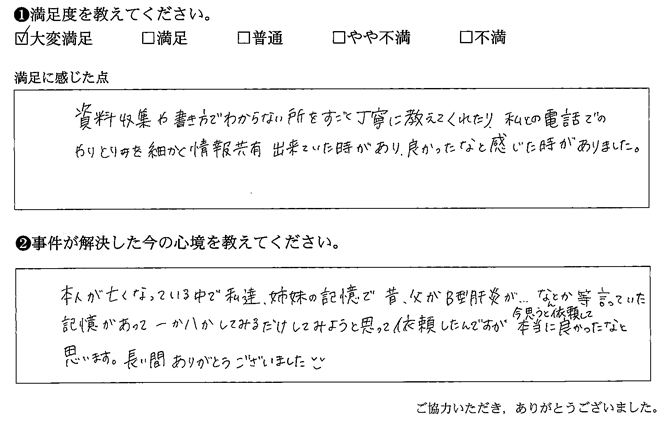 ❶満足度を教えてください。
☑大変満足 ☐満足 ☐普通 ☐やや不満 ☐不満
満足に感じた点
資料収集や書き方でわからない所をすごく丁寧に教えてくれたり、私との電話での
やりとり等を細かく情報共有出来ていた時があり、良かったなと感じた時がありました。
❷事件が解決した今の心境を教えてください。
本人が亡くなっている中で私達、姉妹の記憶で昔、父がB型肝炎が…なんとか等言っていた
記憶があって一か八かしてみるだけしてみようと思って依頼したんですが今思うと依頼して本当に良かったなと
思います。長い間ありがとうございました
ご協力いただき，ありがとうございました。